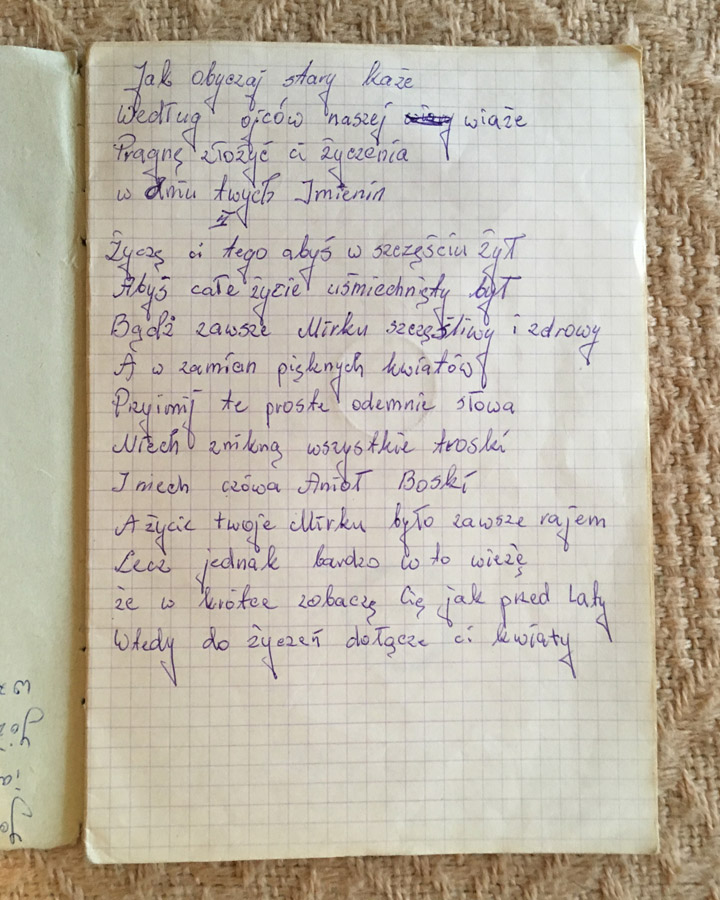 Jak obyczaj stary każe
Według ojców naszej wiąże
Pragnę złożyć ci życzenia
w dniu twych Imienin
II
Życzę ci tego abyś w szczęściu żył
Abyś całe życie uśmiechnięty był
Bądź zawsze Mirku szczęśliwy i zdrowy
A w zamian pięknych kwiatów
Przyimij te proste odemnie słowa
Niech znikną wszystkie troski
I niech czówa Anioł Boski
A życie twoje Mirku było zawsze rajem
Lecz jednak bardzo w to wieżę
że w krótce zobaczę Cię jak przed laty
Wtedy do życzeń dołącze ci kwiaty